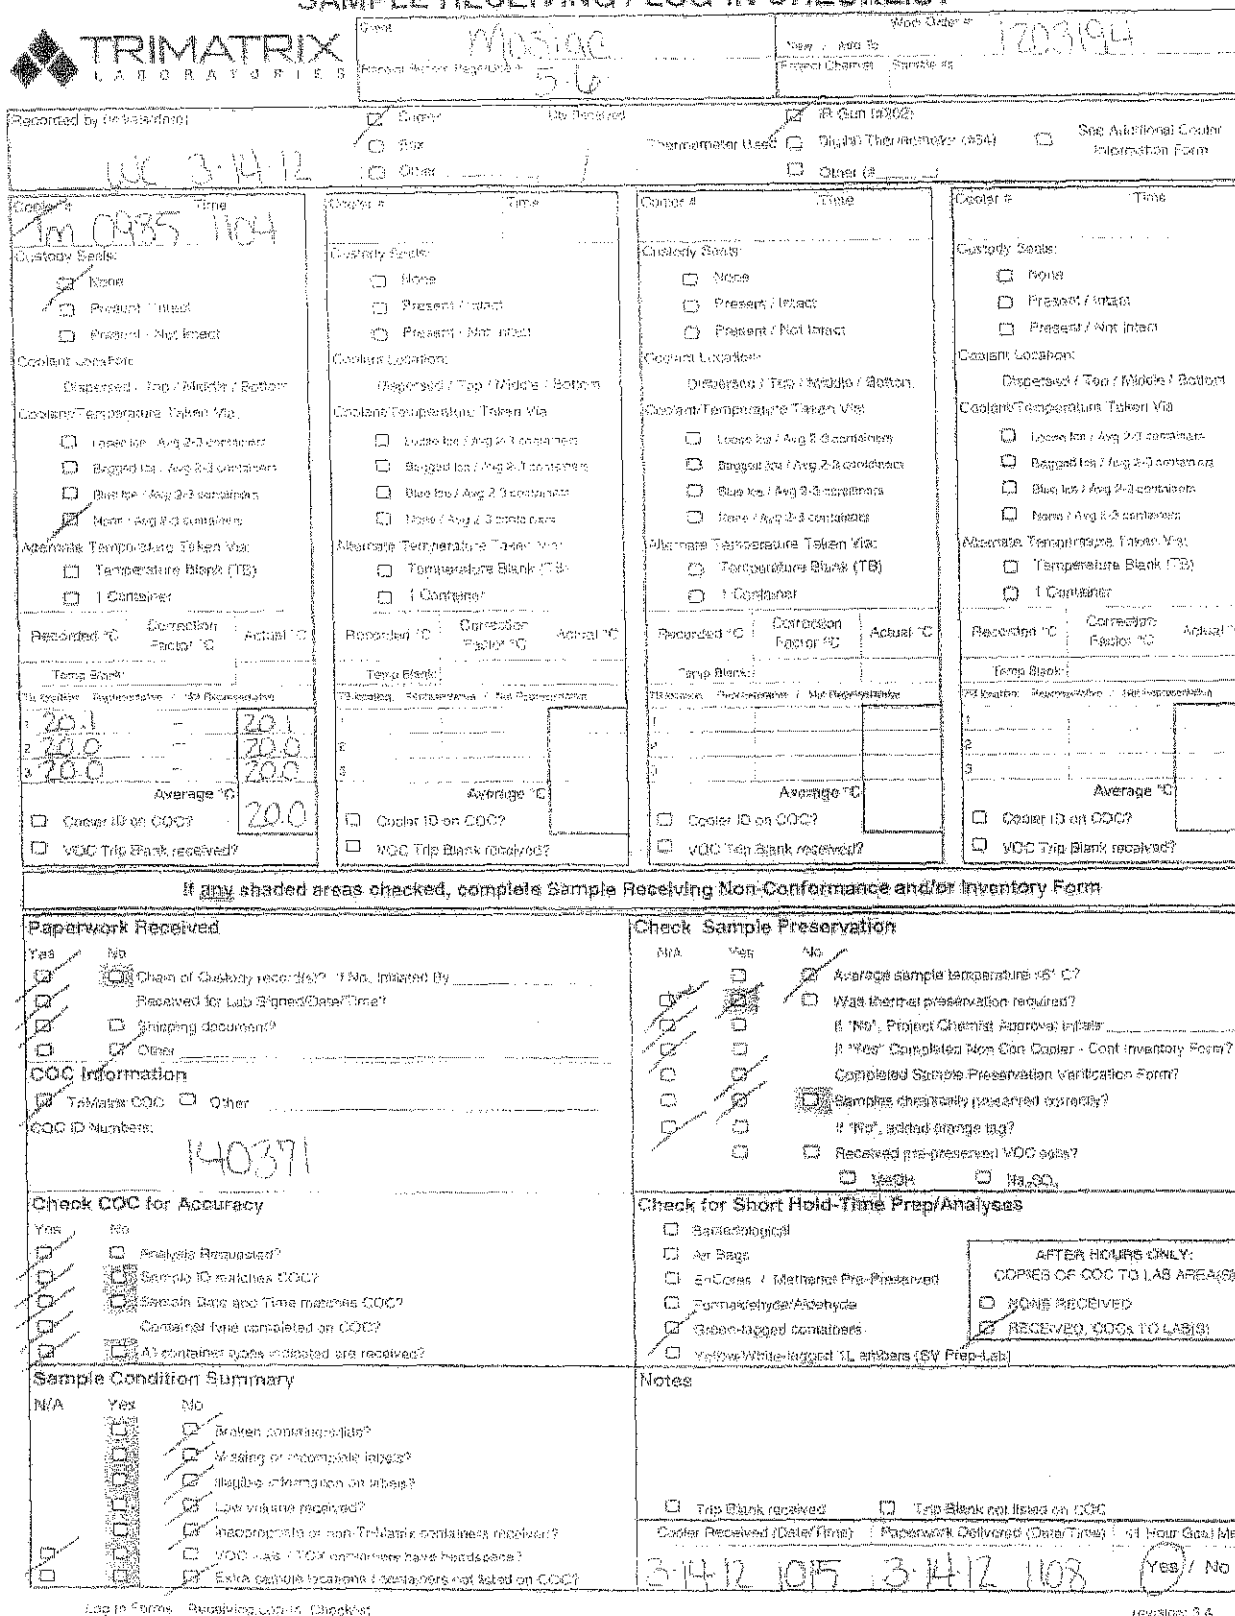 SAMPLE RECEIVING / LOG-IN CHECKLIST
TRIMATRIX
LABORATORIES
Client
Mosiac
Work Order #
1203194
New / Add To
5-6
Project Chemist Sample #s
Recorded by (initials/date)
LUC 3-14-12
Cooler Qty Received
Box
Other 1
Thermometer Used
IR Gun (#202)
Digital Thermometer (#54)
Other (#
See Additional Cooler
Information Form
Cooler # Time
Tm 0985 1104
Custody Seals:
None
Present / Intact
Present / Not Intact
Coolant Location:
Dispersed / Top / Middle / Bottom
Coolant/Temperature Taken Via:
Loose Ice / Avg 2-3 containers
Bagged Ice / Avg 2-3 containers
Blue Ice / Avg 2-3 containers
None / Avg 2-3 containers
Alternate Temperature Taken Via:
Temperature Blank (TB)
1 Container
Recorded °C Correction Factor °C Actual °C
Temp Blank:
TB location: Representative / Not Representative
1 20.1 - 20.1
2 20.0 - 20.0
3 20.0 - 20.0
Average °C
20.0
Cooler ID on COC?
VOC Trip Blank received?
Cooler # Time
Custody Seals:
None
Present / Intact
Present / Not Intact
Coolant Location:
Dispersed / Top / Middle / Bottom
Coolant/Temperature Taken Via:
Loose Ice / Avg 2-3 containers
Bagged Ice / Avg 2-3 containers
Blue Ice / Avg 2-3 containers
None / Avg 2-3 containers
Alternate Temperature Taken Via:
Temperature Blank (TB)
1 Container
Recorded °C Correction Factor °C Actual °C
Temp Blank:
TB location: Representative / Not Representative
1
2
3
Average °C
Cooler ID on COC?
VOC Trip Blank received?
Cooler # Time
Custody Seals:
None
Present / Intact
Present / Not Intact
Coolant Location:
Dispersed / Top / Middle / Bottom
Coolant/Temperature Taken Via:
Loose Ice / Avg 2-3 containers
Bagged Ice / Avg 2-3 containers
Blue Ice / Avg 2-3 containers
None / Avg 2-3 containers
Alternate Temperature Taken Via:
Temperature Blank (TB)
1 Container
Recorded °C Correction Factor °C Actual °C
Temp Blank:
TB location: Representative / Not Representative
1
2
3
Average °C
Cooler ID on COC?
VOC Trip Blank received?
Cooler # Time
Custody Seals:
None
Present / Intact
Present / Not Intact
Coolant Location:
Dispersed / Top / Middle / Bottom
Coolant/Temperature Taken Via
Loose Ice / Avg 2-3 containers
Bagged Ice / Avg 2-3 containers
Blue Ice / Avg 2-3 containers
None / Avg 2-3 containers
Alternate Temperature Taken Via:
Temperature Blank (TB)
1 Container
Recorded °C Correction Factor °C Actual °
Temp Blank:
TB location: Representative / Not Representative
1
2
3
Average °C
Cooler ID on COC?
VOC Trip Blank received?
If any shaded areas checked, complete Sample Receiving Non-Conformance and/or Inventory Form
Paperwork Received
Yes No
Chain of Custody record(s)? If No, Initiated By
Received for Lab Signed/Date/Time?
Shipping document?
Other
COC Information
TriMatrix COC Other
COC ID Numbers:
140371
Check COC for Accuracy
Yes No
Analysis Requested?
Sample ID matches COC?
Sample Date and Time matches COC?
Container type completed on COC?
All container types indicated are received?
Sample Condition Summary
N/A Yes No
Broken containers/lids?
Missing or incomplete labels?
Illegible information on labels?
Low volume received?
Inappropriate or non-TriMatrix containers received?
VOC vials / TOX containers have headspace?
Extra sample locations / containers not listed on COC?
Check Sample Preservation
N/A Yes No
Average sample temperature ≤6° C?
Was thermal preservation required?
If "No", Project Chemist Approval Initials
If "Yes" Completed Non Con Cooler - Cont Inventory Form?
Completed Sample Preservation Verification Form?
Samples chemically preserved correctly?
If "No", added orange tag?
Received pre-preserved VOC soils?
MeOH Na₂SO₄
Check for Short Hold-Time Prep/Analyses
Bacteriological
Air Bags
EnCores / Methanol Pre-Preserved
Formaldehyde/Aldehyde
Green-tagged containers
Yellow/White-tagged 1L ambers (SV Prep-Lab)
AFTER HOURS ONLY:
COPIES OF COC TO LAB AREA(S)
NONE RECEIVED
RECEIVED, COCs TO LAB(S)
Notes
Trip Blank received Trip Blank not listed on COC
Cooler Received (Date/Time) Paperwork Delivered (Date/Time) ≤1 Hour Goal Me
3-14-12 1015 3-14-12 1108 Yes / No
Log In Forms Receiving Log-In Checklist
revision: 3.4